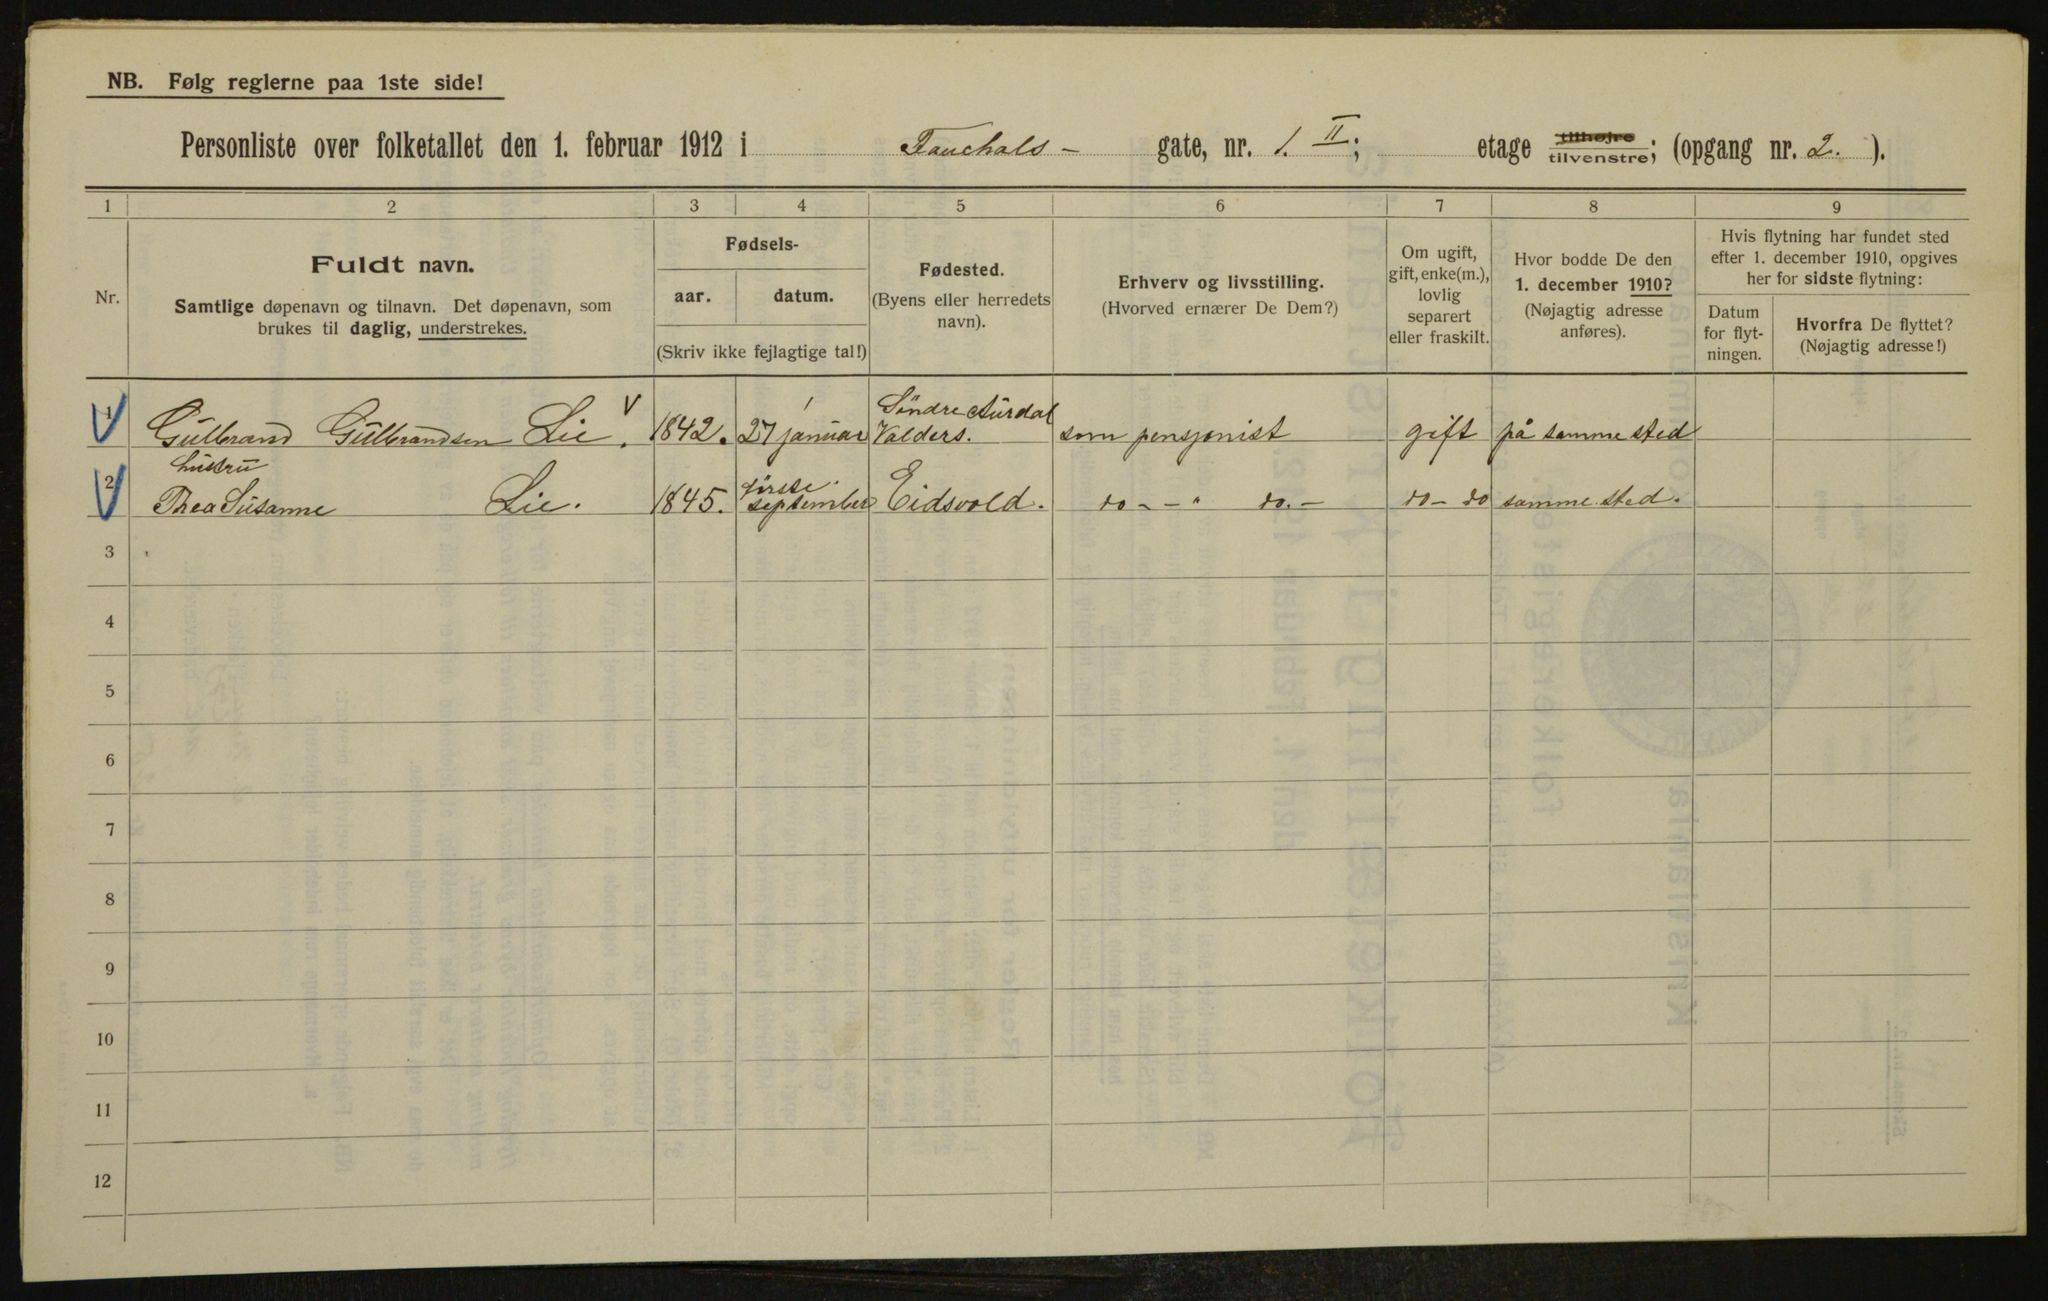 NB. Følg reglerne paa 1ste side!
Personliste over folketallet den 1. februar 1912 i Fauchals- gate, nr. 1. II; etage tilhøjre tilvenstre; (opgang nr. 2. ).
1 2 3 4 5 6 7 8 9
Nr.
Fuldt navn.
Samtlige døpenavn og tilnavn. Det døpenavn, som
brukes til daglig, understrekes.
Fødsels-
aar. datum.
(Skriv ikke fejlagtige tal!)
Fødested.
(Byens eller herredets
navn).
Erhverv og livsstilling.
(Hvorved ernærer De Dem?)
Om ugift,
gift, enke(m.),
lovlig
separert
eller fraskilt.
Hvor bodde De den
1. december 1910?
(Nøjagtig adresse
anføres).
Hvis flytning har fundet sted
efter 1. december 1910, opgives
her for sidste flytning:
Datum
for flyt-
ningen.
Hvorfra De flyttet?
(Nøjagtig adresse!)
Söndre Aurdal
1 Gülbrand Gülbrandsen Lie. 1842. 27 januar Valders. som pensjonist gift på samme sted
hustru første
2 Thea Süsanne Lie. 1845. september Eidsvold. do - - " do. - do - do samme sted.
3
4
5
6
7
8
9
10
11
12